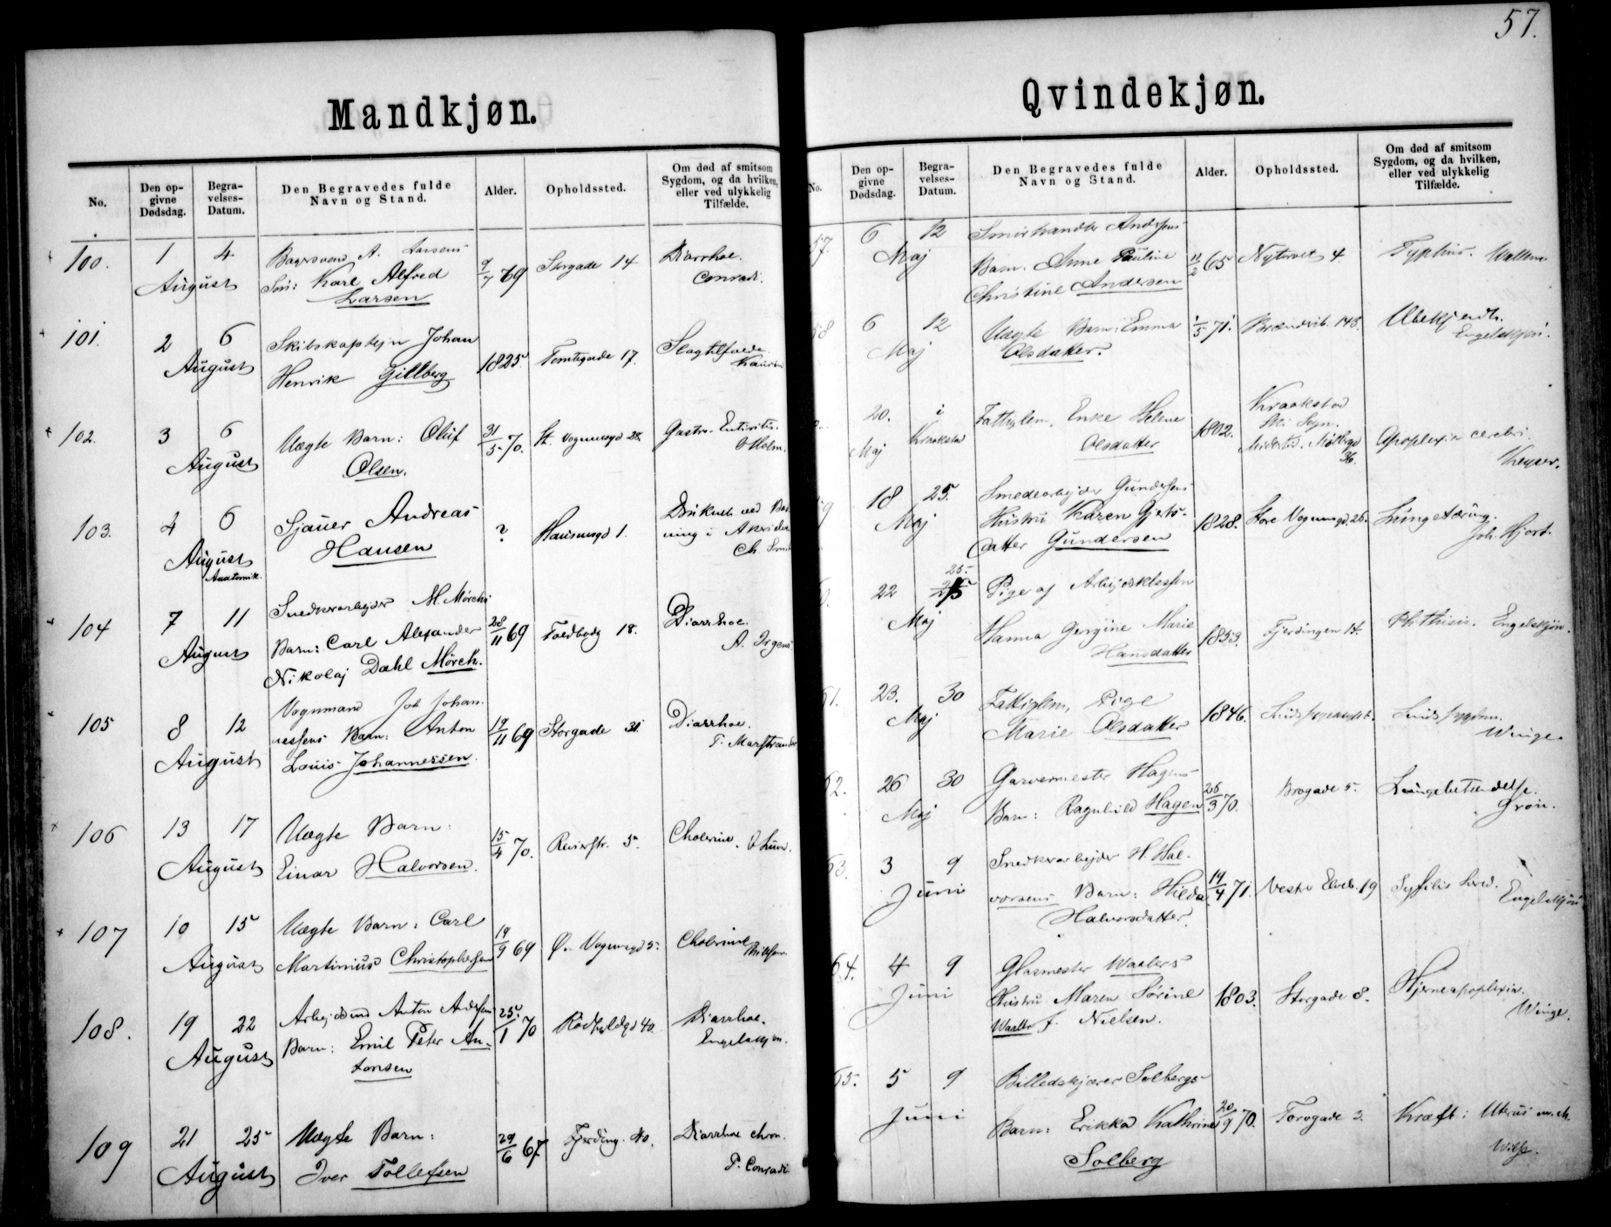 57.
Mandkjøn.
No.
Den op-
givne
Dødsdag.
Begra-
velses-
Datum.
Den Begravedes fulde
Navn og Stand.
Alder.
Opholdssted.
Om død af smitsom
Sygdom, og da hvilken,
eller ved ulykkelig
Tilfælde.
100. 1 4 August
Søn: Karl Alfred
Larsen
9/7 69 Storgade 14 Diarrhoe.
Conradi.
101. 2 6 August
Skibskaptejn Johan
Henrik Gillberg
1825. Tomtegade 17. Slagtilfælde
102. 3 6 August
Uægte Barn: Oluf
Olsen.
31/5 70. St. Vognmgd 28. Gastro-Enteritis.
Holm.
103. 4 6 August
Anatomik.
Sjauer Andreas
Hansen
? Hausmgd 1.
104 7 11 August
Snedkerarbejder M. Mørchs
Barn: Carl Alexander
Nikolaj Dahl Mørch.
28/11 69 Toldbodg 18. Diarrhoe.
105 8 12 August
Vognmand Joh Johan-
nessens Barn: Anton
Louis Johannessen.
19/11 69 Storgade 31. Diarrhoe.
106 13 17 August
Uægte Barn:
Einar Halvorsen.
15/4 70. Revierstr. 5. Cholerine. O Lund.
107 10 15 August
Uægte Barn: Carl
Martinius Christophersen
14/9 69 Ø. Vognmgd 5. Cholerine
108. 19 22 August
Arbejdsmd Anton Andersens
Barn: Emil Peter An-
tonsen
25/1 70 Rødfyldgd 40. Diarrhoe.
Engelskjøn.
109 21 25 August
Uægte Barn:
Iver Tollefsen
29/6 67 Fjerding. 40. Diarrhoe chron.
T. Conradi
Qvindekjøn.
No.
Den op-
givne
Dødsdag.
Begra-
velses-
Datum.
Den Begravedes fulde
Navn og Stand.
Alder.
Opholdssted.
Om død af smitsom
Sygdom, og da hvilken,
eller ved ulykkelig
Tilfælde.
57. 6 12 Maj
Smørhandler Andersens
Barn. Anne Pauline
Christine Andersen
11/2 65 Nytorvet 4 Typhus.
58 6 12 Maj
Uægte Barn: Emma
Olsdatter.
1/5 71. 148. Ubekjendt.
Engelskjøn.
20. Maj i Kraakstad
Fattiglem, Enke Helene
Olsdatter
1802. Kraakstad
Apoplexia cerebri.
Keyser.
18 25 Maj
Smedearbejder Gundersens
Hustru Karen Gjerts-
datter Gundersen
1828. Store Vognmgd. 26. Lungetæring.
Joh. Hjort.
22 25 Maj
Pige af Arbejdsklassen
Hanna Georgine Marie
Hansdatter
1853. Fjerdingen 14. Phthisis. Engelskjøn.
61. 23. 30 Maj
Fattiglem, Pige
Marie Olsdatter
1846.
Winge
62. 26 30 Maj
Garvermester Hagens
Barn: Ragnhild Hagen
26/3 70. Brogade 5. Lungebetændelse.
Grøn.
63. 3 9 Juni
Snedkerarbejder H. Hal-
vorsens Barn: Hilda
Halvorsdatter.
14/4 71. Vestre Elveb. 19 Syfilis
Engelskjøn
64. 4 9 Juni
Glasmester Waalers
Hustru Maren Sørine
Waaler f. Nielsen.
1803. Storgade 8. Hjerneapoplexia.
Winge.
65. 5 9 Juni
Billedskjærer Solbergs
Barn: Erikka Kathrine
Solberg
20/9 70. Torvgade 2. Kræft i Uterus